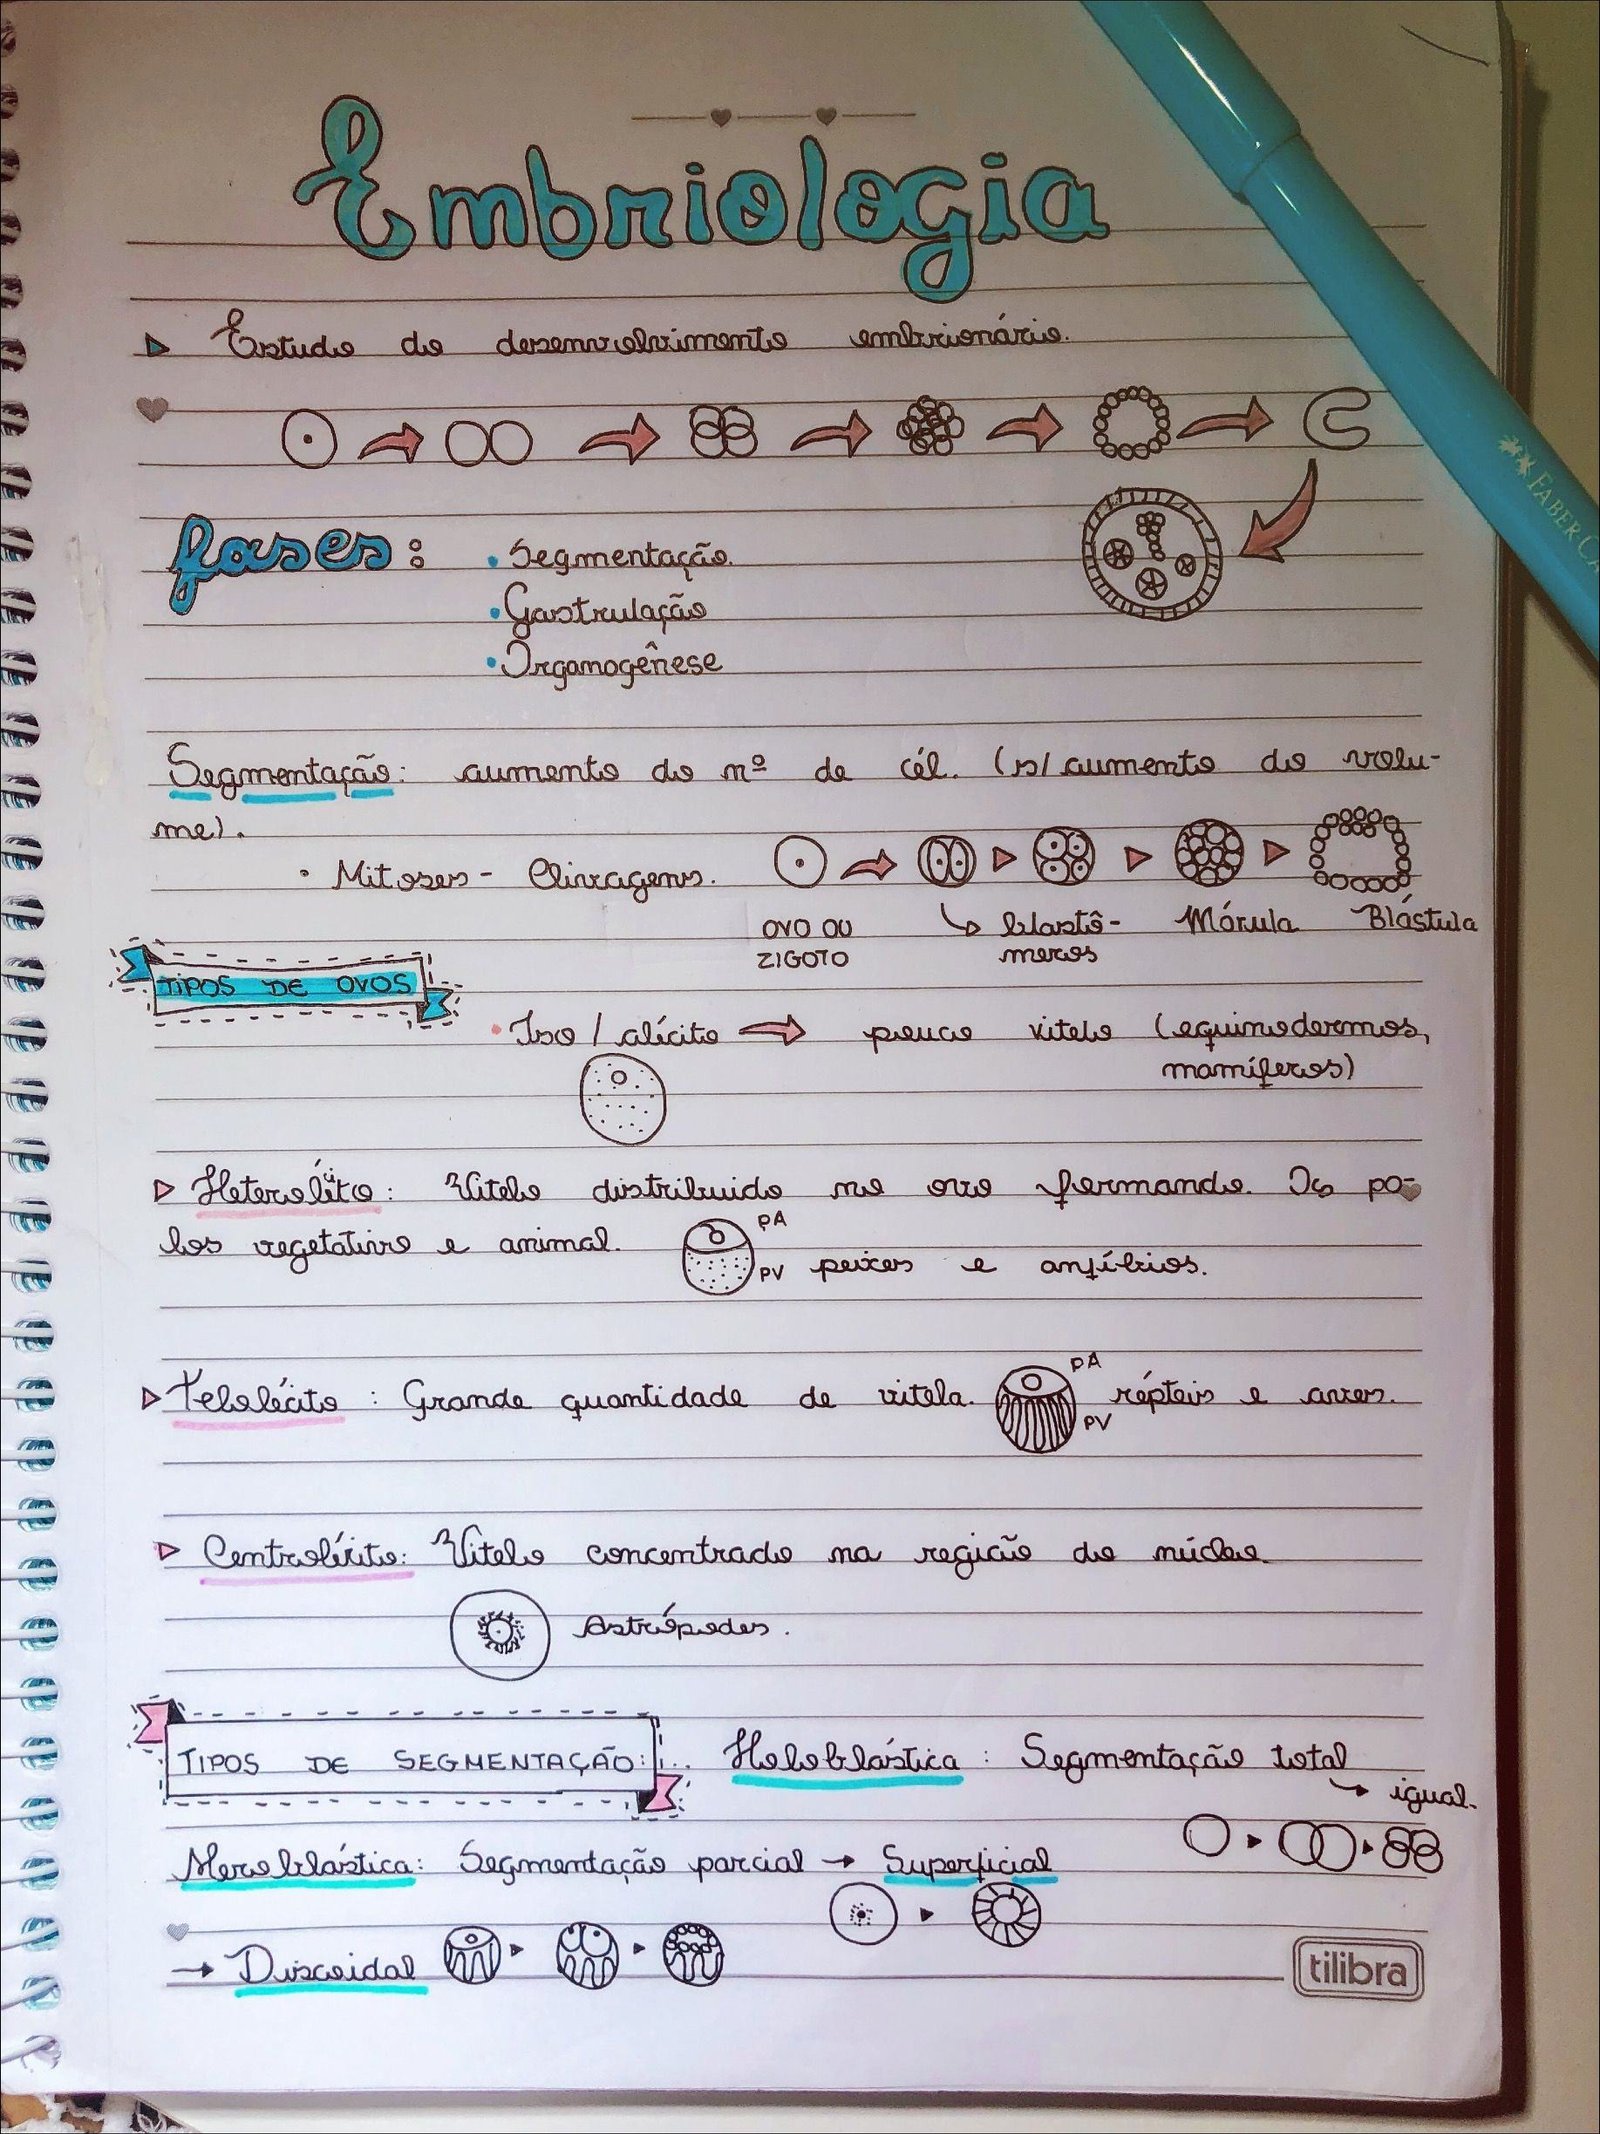 Embriologia
Estudo do desenvolvimento embrionário.
fases:
• Segmentação.
• Gastrulação
• Organogênese
Segmentação: aumento do nº de cél. (s/ aumento do volu-
me).
• Mitoses - Clivagens.
OVO OU
ZIGOTO
blastô-
meros
Mórula
Blástula
TIPOS DE OVOS
• Iso / alécito → pouco vitelo (equinodermos,
mamíferos)
Vitelo distribuido no ovo formando. Os po-
los vegetativo e animal.
PA
PV
peixes e anfíbios.
Telolécito: Grande quantidade de vitelo.
PA
PV
répteis e aves.
Centrolécito: Vitelo concentrado na região do núcleo.
Astrópodes.
TIPOS DE SEGMENTAÇÃO:
Holoblástica: Segmentação total
→ igual.
Meroblástica: Segmentação parcial → Superficial
→ Discoidal
tilibra
FABER-CA